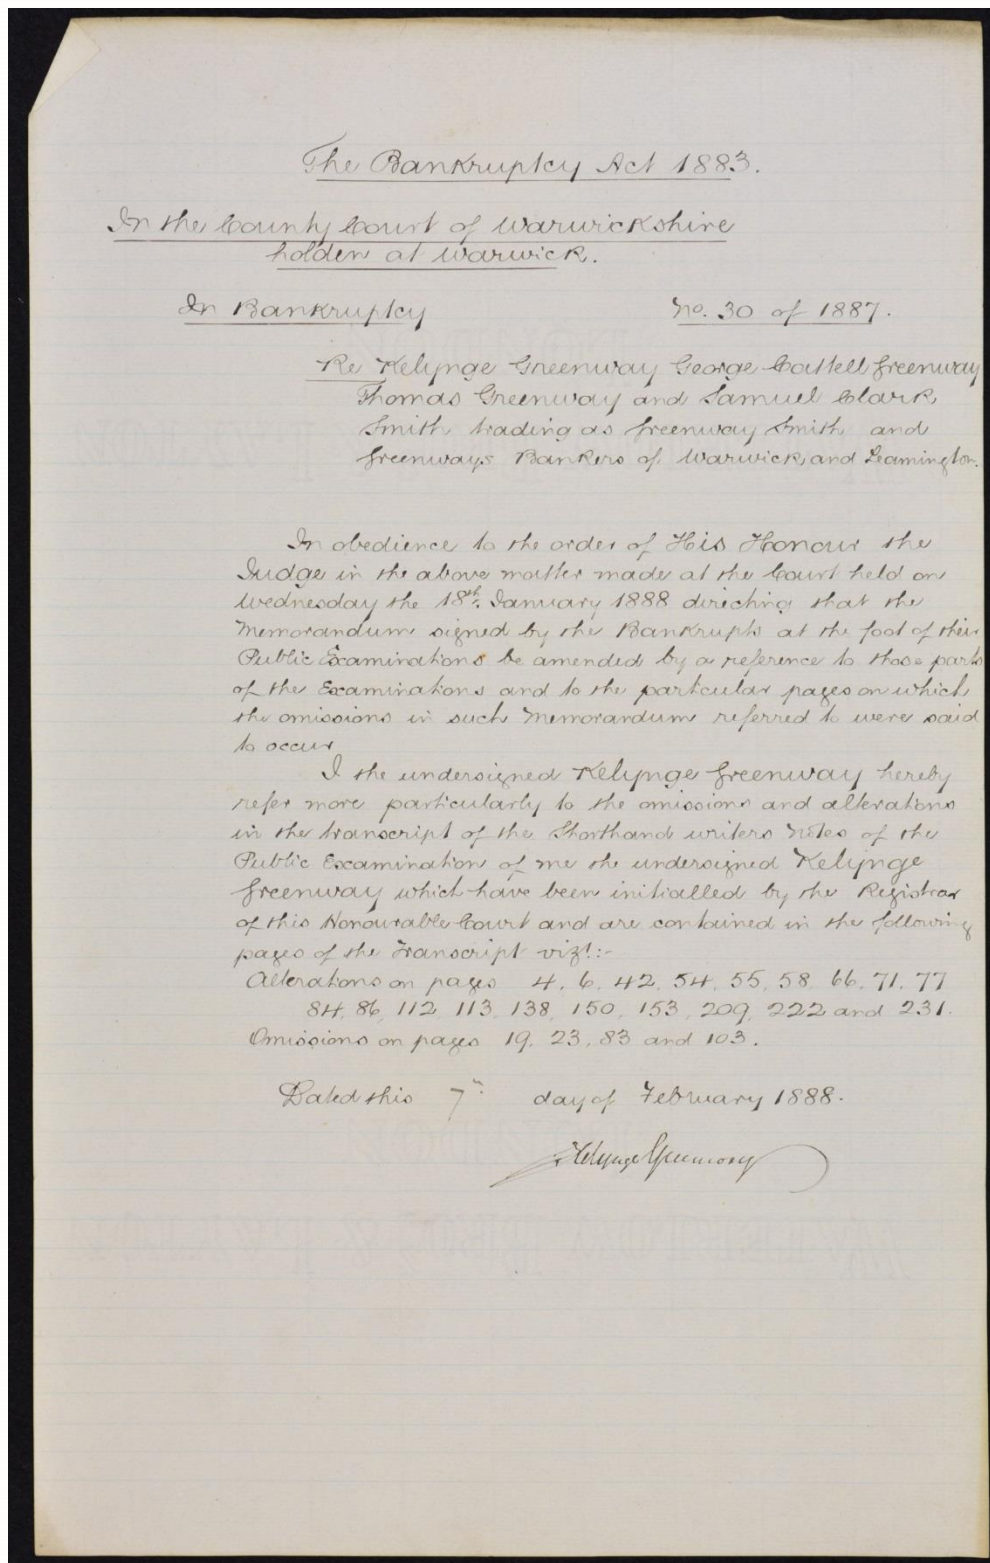 The Bankruptcy Act 1883.
In the County Court of Warwickshire
holden at Warwick.
In Bankruptcy No. 30 of 1887.
Re Kelynge Greenway George Cattell Greenway
Thomas Greenway and Samuel Clark
Smith trading as Greenway Smith and
Greenways Bankers of Warwick and Leamington.
In obedience to the order of His Honour the
Judge in the above matter made at the Court held on
Wednesday the 18th. January 1888 directing that the
Memorandum signed by the Bankrupts at the foot of their
Public Examinations be amended by a reference to those parts
of the Examinations and to the particular pages on which
the omissions in such Memorandum referred to were said
to occur
I the undersigned Kelynge Greenway hereby
refer more particularly to the omissions and alterations
in the transcript of the Shorthand writers Notes of the
Public Examination of me the undersigned Kelynge
Greenway which have been initialled by the Registrar
of this Honourable Court and are contained in the following
pages of the Transcript vizt:-
Alterations on pages 4, 6, 42, 54, 55, 58, 66, 71, 77
84, 86, 112, 113, 138, 150, 153, 209, 222 and 231.
Omissions on pages 19, 23, 83 and 103.
Dated this 7th day of February 1888.
Kelynge Greenway